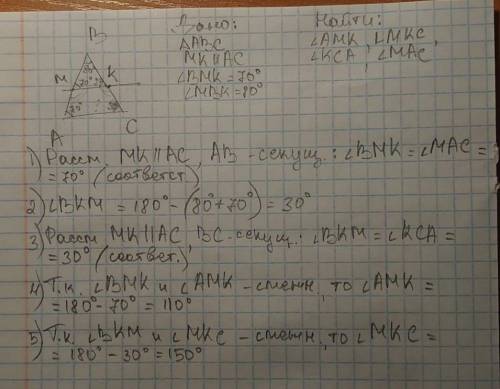 Дано:
Найти:
△ABC
MK || AC
∠BMK = 70°
∠MBK = 80°
∠AMK, ∠MKC,
∠KCA, ∠MAC,
B
80°
M
70°
K
70°
A
C
1) Рассм. MK || AC, AB - секущ.: ∠BMK = ∠MAC =
= 70° (соответст.)
2) ∠BKM = 180° - (80° + 70°) = 30°
3) Рассм MK || AC, BC - секущ.: ∠BKM = ∠KCA =
= 30° (соответ.)
4) Т.к. ∠BMK и ∠AMK - смежн, то ∠AMK =
= 180° - 70° = 110°
5) Т.к. ∠BKM и ∠MKC - смежн, то ∠MKC =
= 180° - 30° = 150°